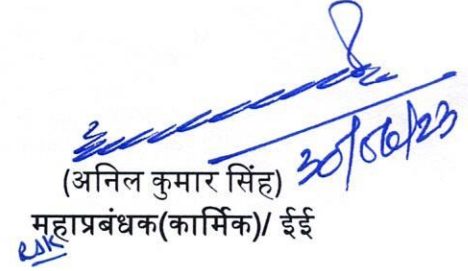 30/06/23
(अनिल कुमार सिंह)
महाप्रबंधक(कार्मिक)/ ईई